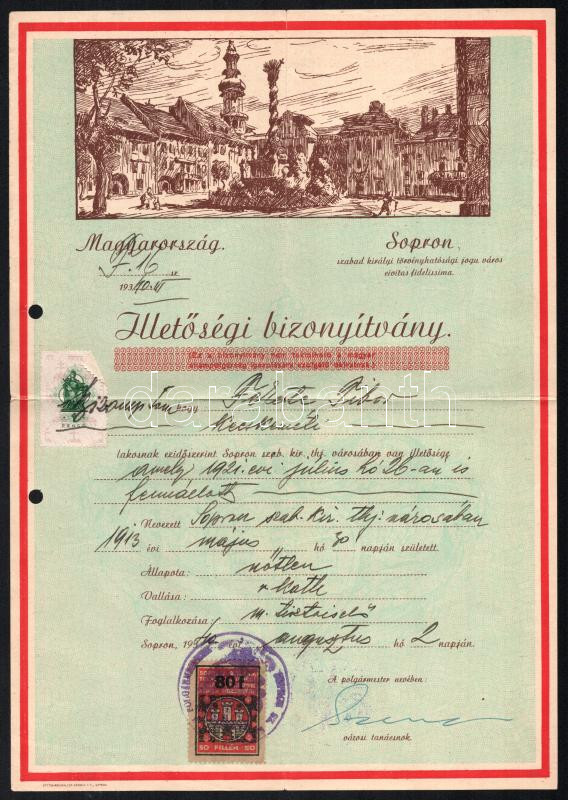 Magyarország.
Sopron,
szabad királyi törvényhatósági jogu város
civitas fidelissima.
I. 16 sz
193 40. III
Illetőségi bizonyítvány.
(Ez a bizonyítvány nem tekinthető a magyar
állampolgárság igazolására szolgáló okiratnak.)
Bizonyítom hogy Fekete Tibor
kecskeméti
lakosnak ezidőszerint Sopron szab. kir. thj. városában van illetősége
amely 1921. évi julius hó 26-án is
fennállott
Nevezett Sopron szab. kir. thj. városában
1913 évi május hó 30 napján született.
Állapota: nőtlen
Vallása: r. kath
Foglalkozása: m. tisztviselő
Sopron, 19 40 évi augusztus hó 2 napján.
A polgármester nevében:
városi tanácsnok.
80 f
50 FILLÉR 50
darabanth